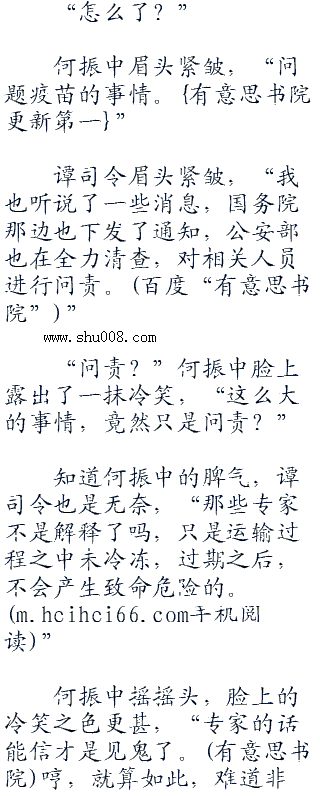 “怎么了？”
何振中眉头紧皱，“问
题疫苗的事情。{有意思书院
更新第一}”
谭司令眉头紧皱，“我
也听说了一些消息，国务院
那边也下发了通知，公安部
也在全力清查，对相关人员
进行问责。(百度“有意思书
院”)”
www.shu008.com
“问责？”何振中脸上
露出了一抹冷笑，“这么大
的事情，竟然只是问责？”
知道何振中的脾气，谭
司令也是无奈，“那些专家
不是解释了吗，只是运输过
程之中未冷冻，过期之后，
不会产生致命危险的。
(m.hcihci66.com手机阅
读)”
何振中摇摇头，脸上的
冷笑之色更甚，“专家的话
能信才是见鬼了。(有意思书
院)哼，就算如此，难道非